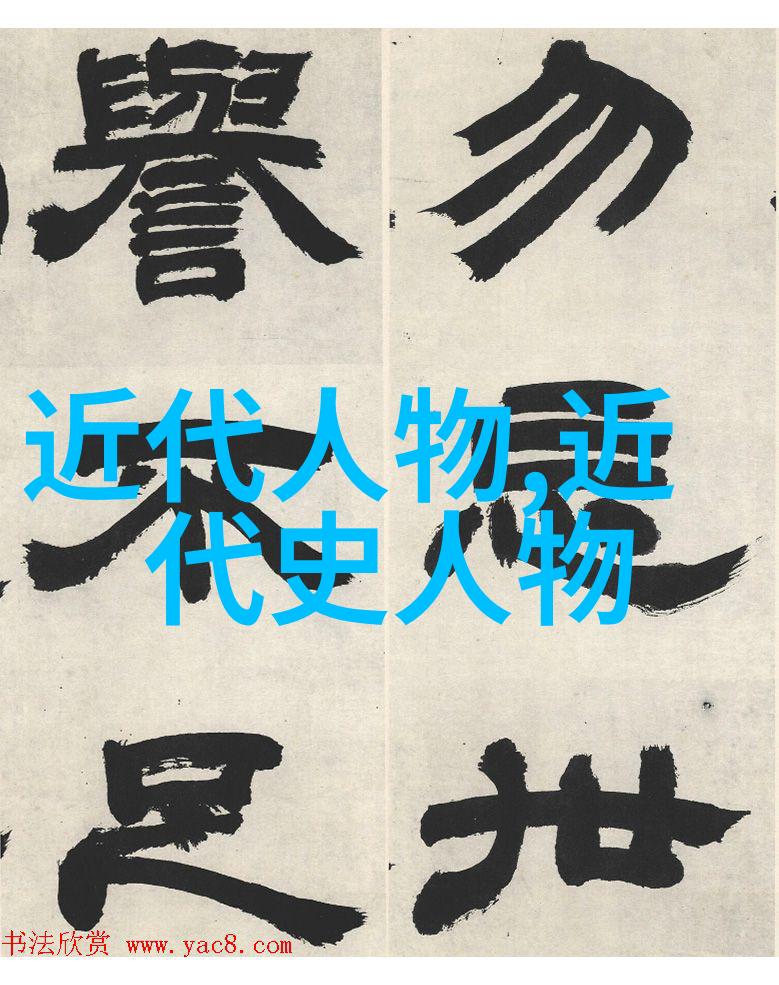 勿忘世
譽不足
近代人物,近
代史人物
书法欣赏 www.yac8.com